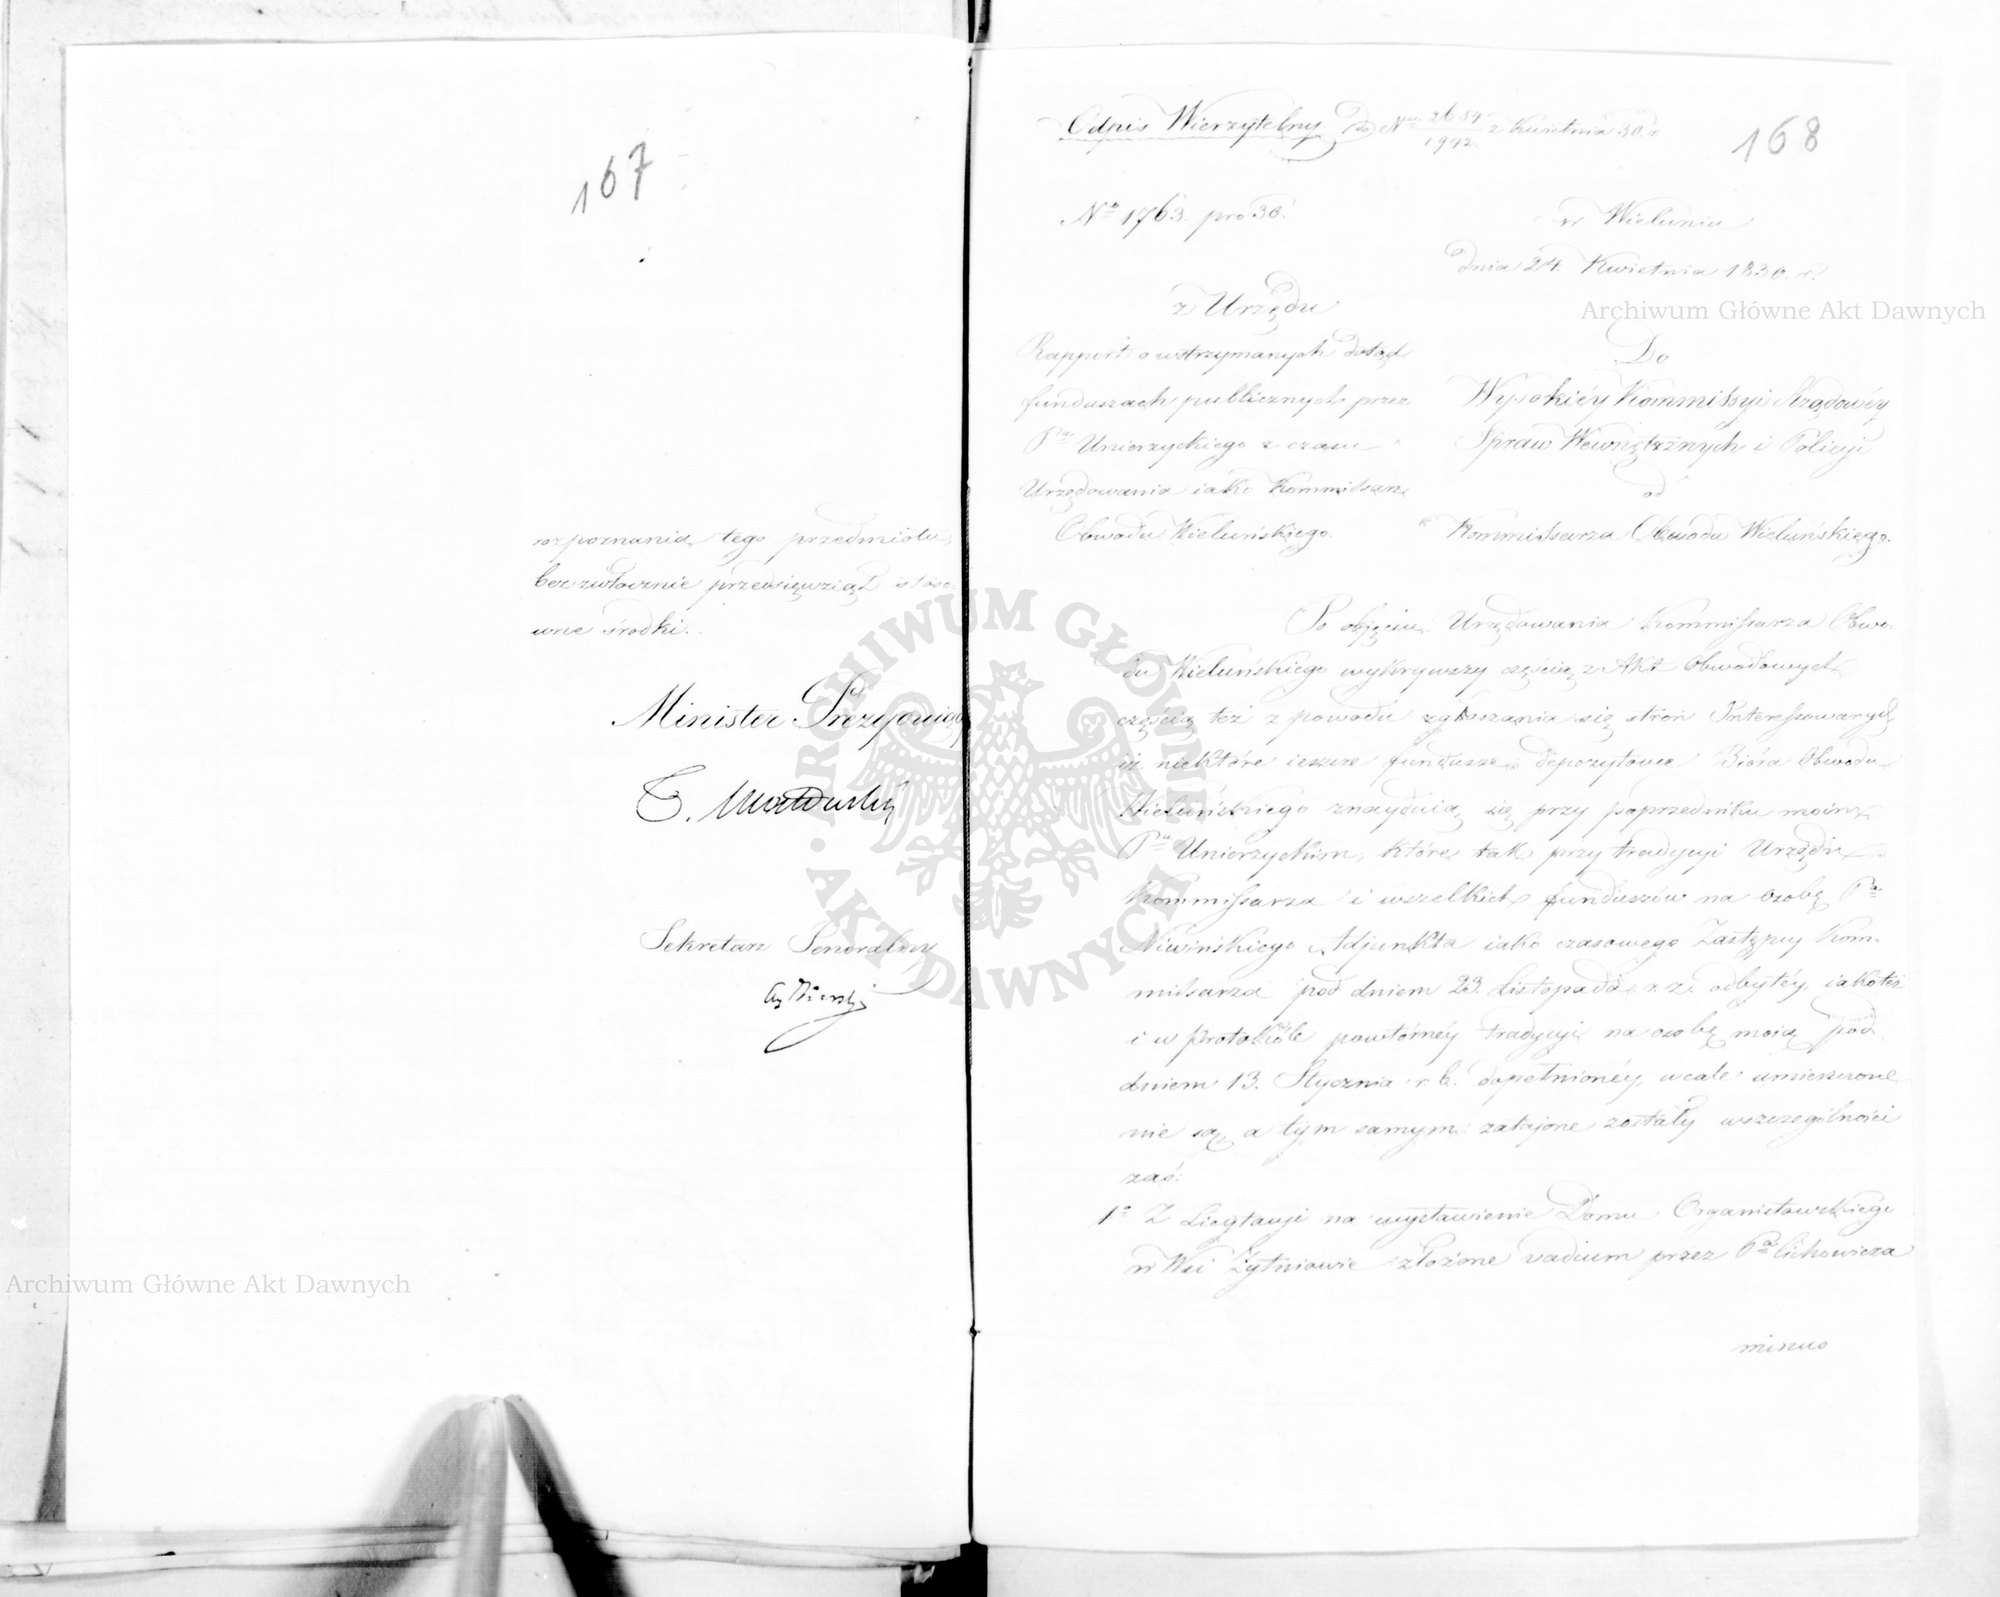 167
rozpoznania tego przedmiotu,
bezzwłocznie przedsięwziął stoso-
wne środki.
Minister Prezyduiący
T. Mostowski
Sekretarz Generalny
168
Odpis Wierzytelny do Nru 2654/1942 z Kwietnia 30. r.
No 1763. pro 30.
w Wieluniu
dnia 24. Kwietnia 1830. r.
z Urzędu
Rapport o wstrzymanych dotąd
funduszach publicznych przez
Pa Unierzyckiego z czasu
Urzędowania iako Kommissarz
Obwodu Wieluńskiego.
Do
Wysokiéy Kommissyi Rządowéy
Spraw Wewnętrznych i Policyi
od
Kommissarza Obwodu Wieluńskiego.
Po objęciu Urzędowania Kommissarza Obwo-
du Wieluńskiego wykrywszy częścią z Akt Obwodowych
częścią też z powodu zgłaszania się stron Interessowanych
iż niektóre ieszcze fundusze depozytowe Bióra Obwodu
Wieluńskiego znayduią się przy poprzedniku moim
Pu Unierzyckim, które tak przy tradycyi Urzędu
Kommissarza i wszelkich funduszów na osobę Pa
Niwińskiego Adjunkta iako czasowego Zastępcy Kom-
missarza pod dniem 23. Listopada r. z. odbytéy, iakoteż
i w protokóle powtórnéy tradycyi na osobę moią pod
dniem 13. Stycznia r. b. dopełnionéy, wcale umieszczone
nie są, a tym samym zataione zostały wszczególności
zaś:
1o Z Licytacyi na wystawienie Domu Organistowskiego
w Wsi Żytniowie złożone vadium przez Pa Cichowicza
minus
Archiwum Główne Akt Dawnych
Archiwum Główne Akt Dawnych
ARCHIWUM GŁÓWNE · AKT DAWNYCH ·